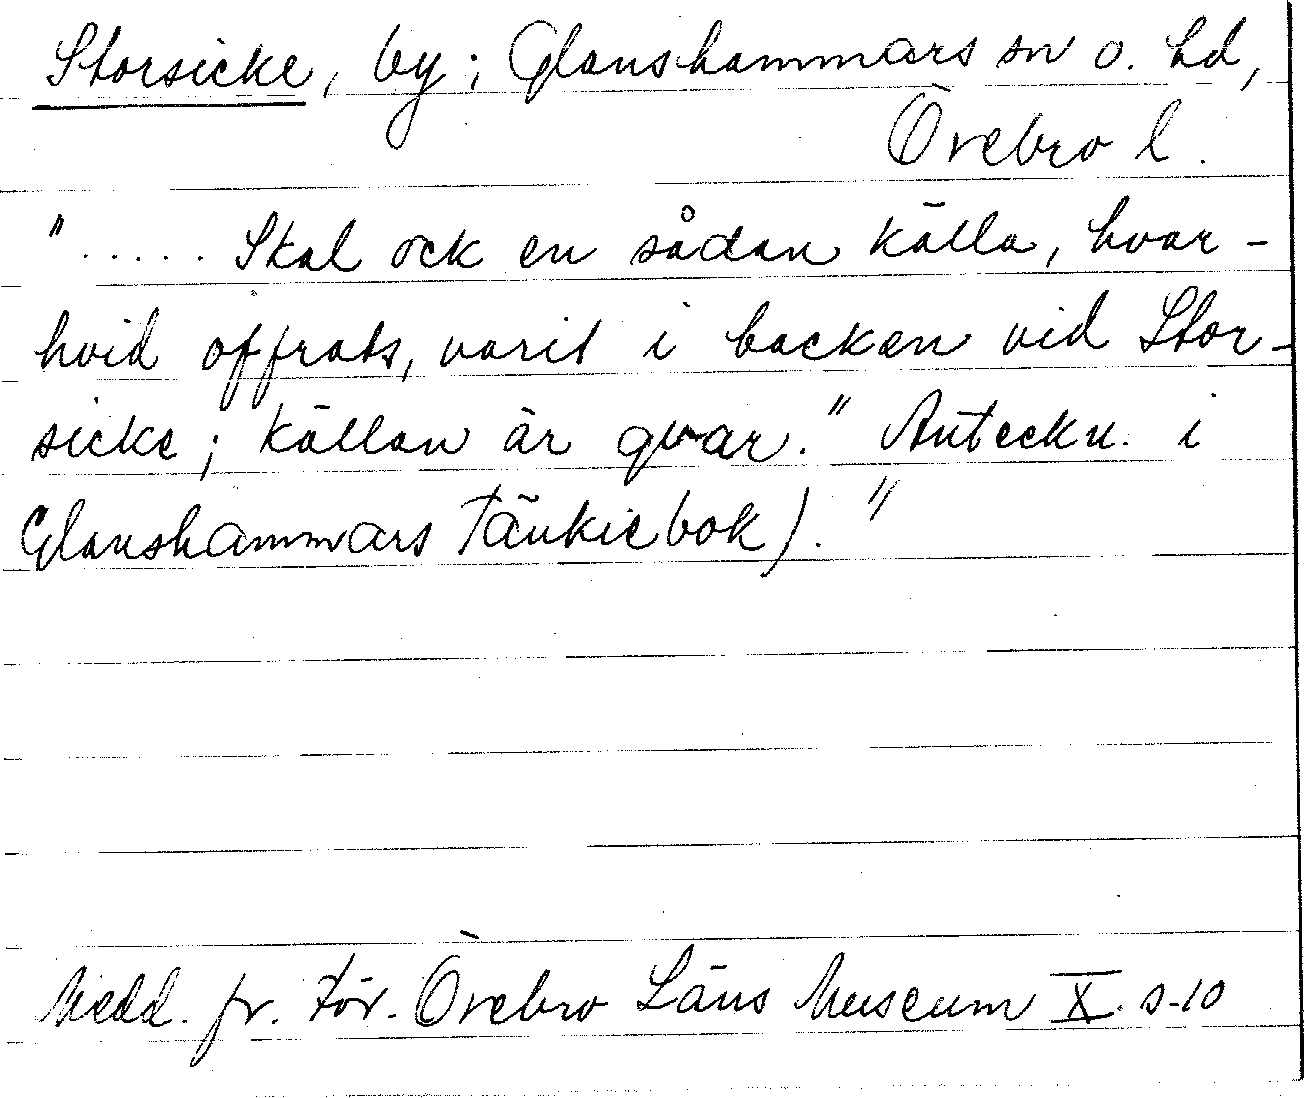 Storsicke, by; Glanshammars sn o. hd,
Örebro l.
"..... Skal ock en sådan källa, hvar-
hvid offrats, varit i backen vid Stor-
sicke; källan är qvar." Anteckn. i
Glanshammars Tänkiebok)."
Medd. fr. För. Örebro Läns Museum X. s-10